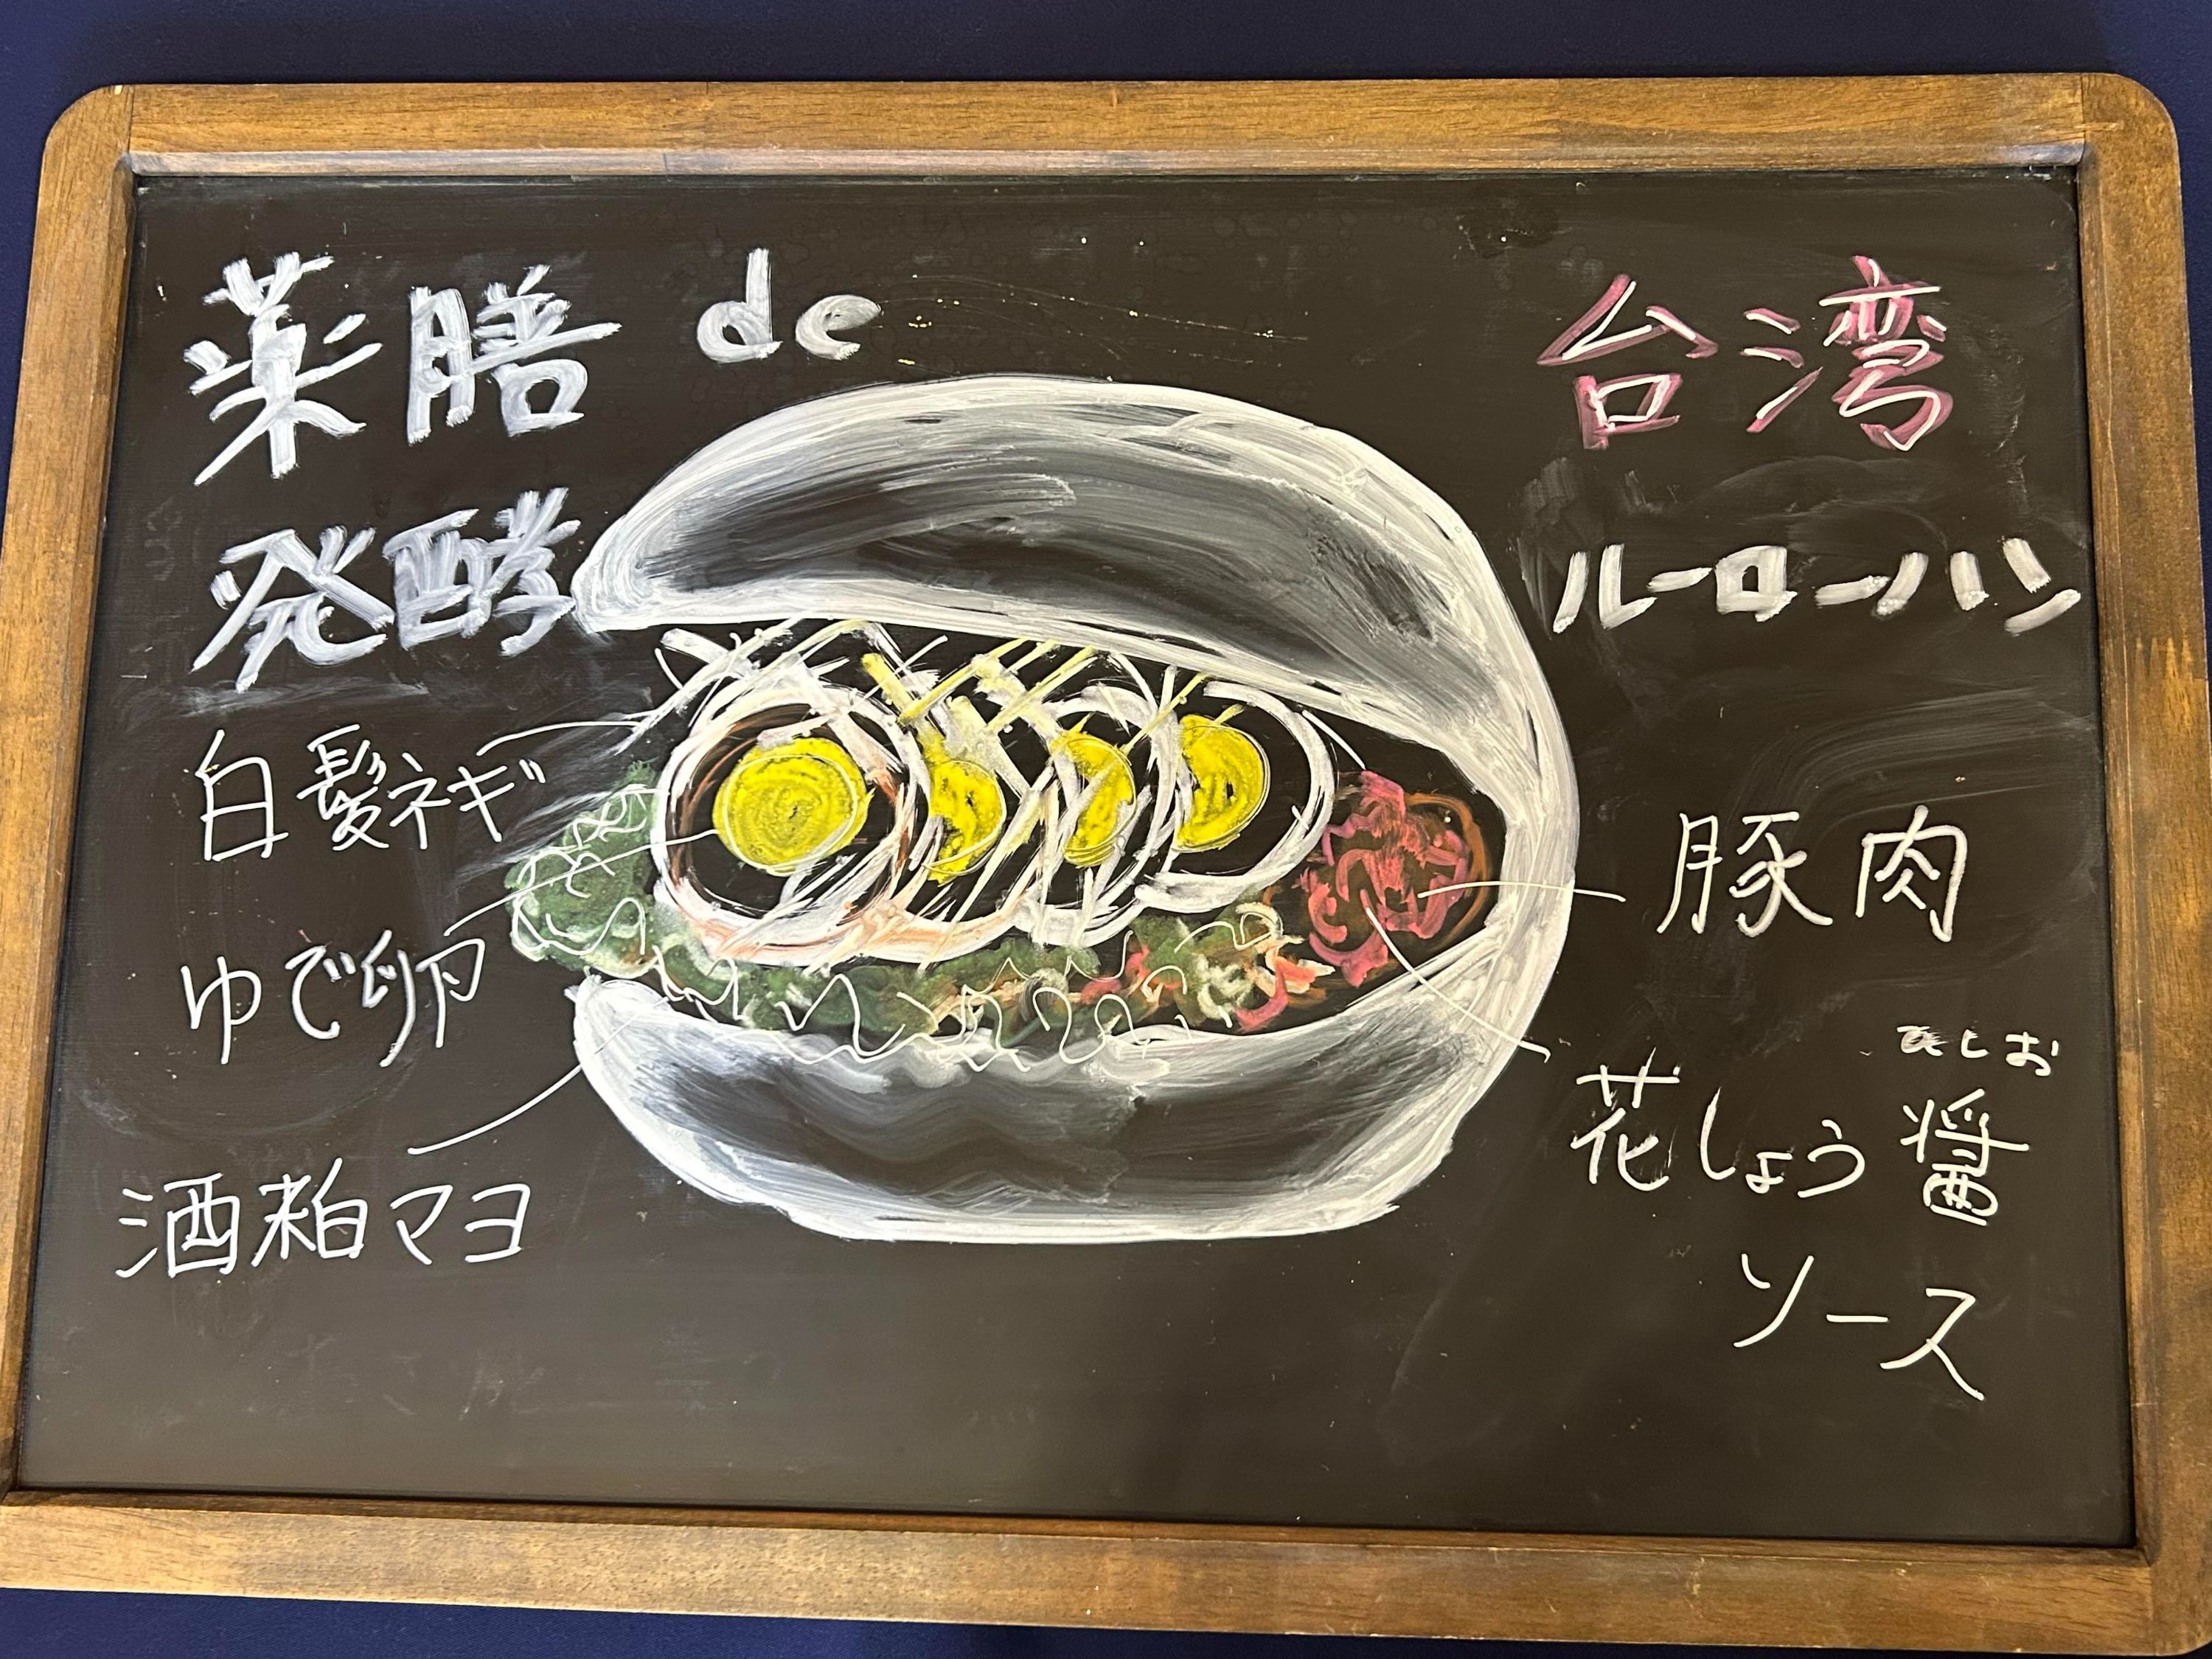 薬膳 de
発酵
白髪ネギ
ゆで卵
酒粕マヨ
台湾
ルーローハン
豚肉
花しょう醤
ソース